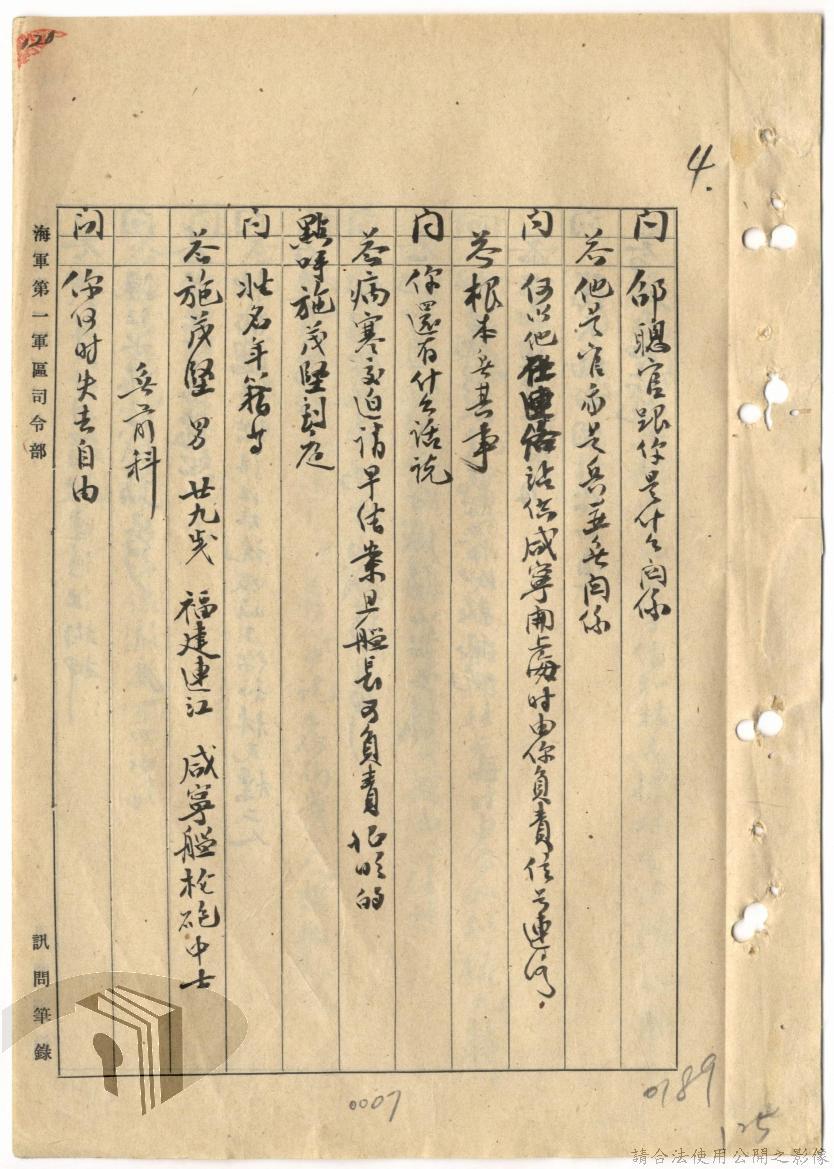 4.
问 邵聰官跟你是什么関係
答 他是官而我是兵並無関係
问 何以他供咸寧開上海时由你負責信号連络。
答 根本無其事
问 你還有什么話说
答 病寒交迫請早结業且艦長可負責证明的
點呼施茂堅到庭
问 姓名年籍等
答 施茂堅 男 廿九岁 福建連江 咸寧艦枪砲中士
無前科
问 你何时失去自由
海軍第一軍區司令部
訊問筆錄
0007
0189
125
128
請合法使用公開之影像